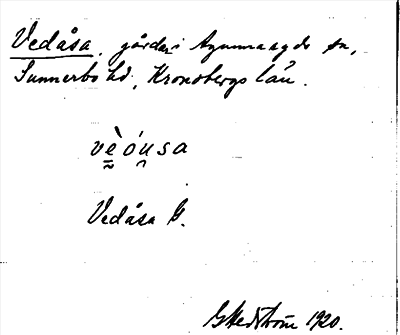 Vedåsa, gårdar i Agunnaryds sn,
Sunnerbo hd, Kronobergs län.
vèóusa
Vedåsa G.
G Hedström 1920.